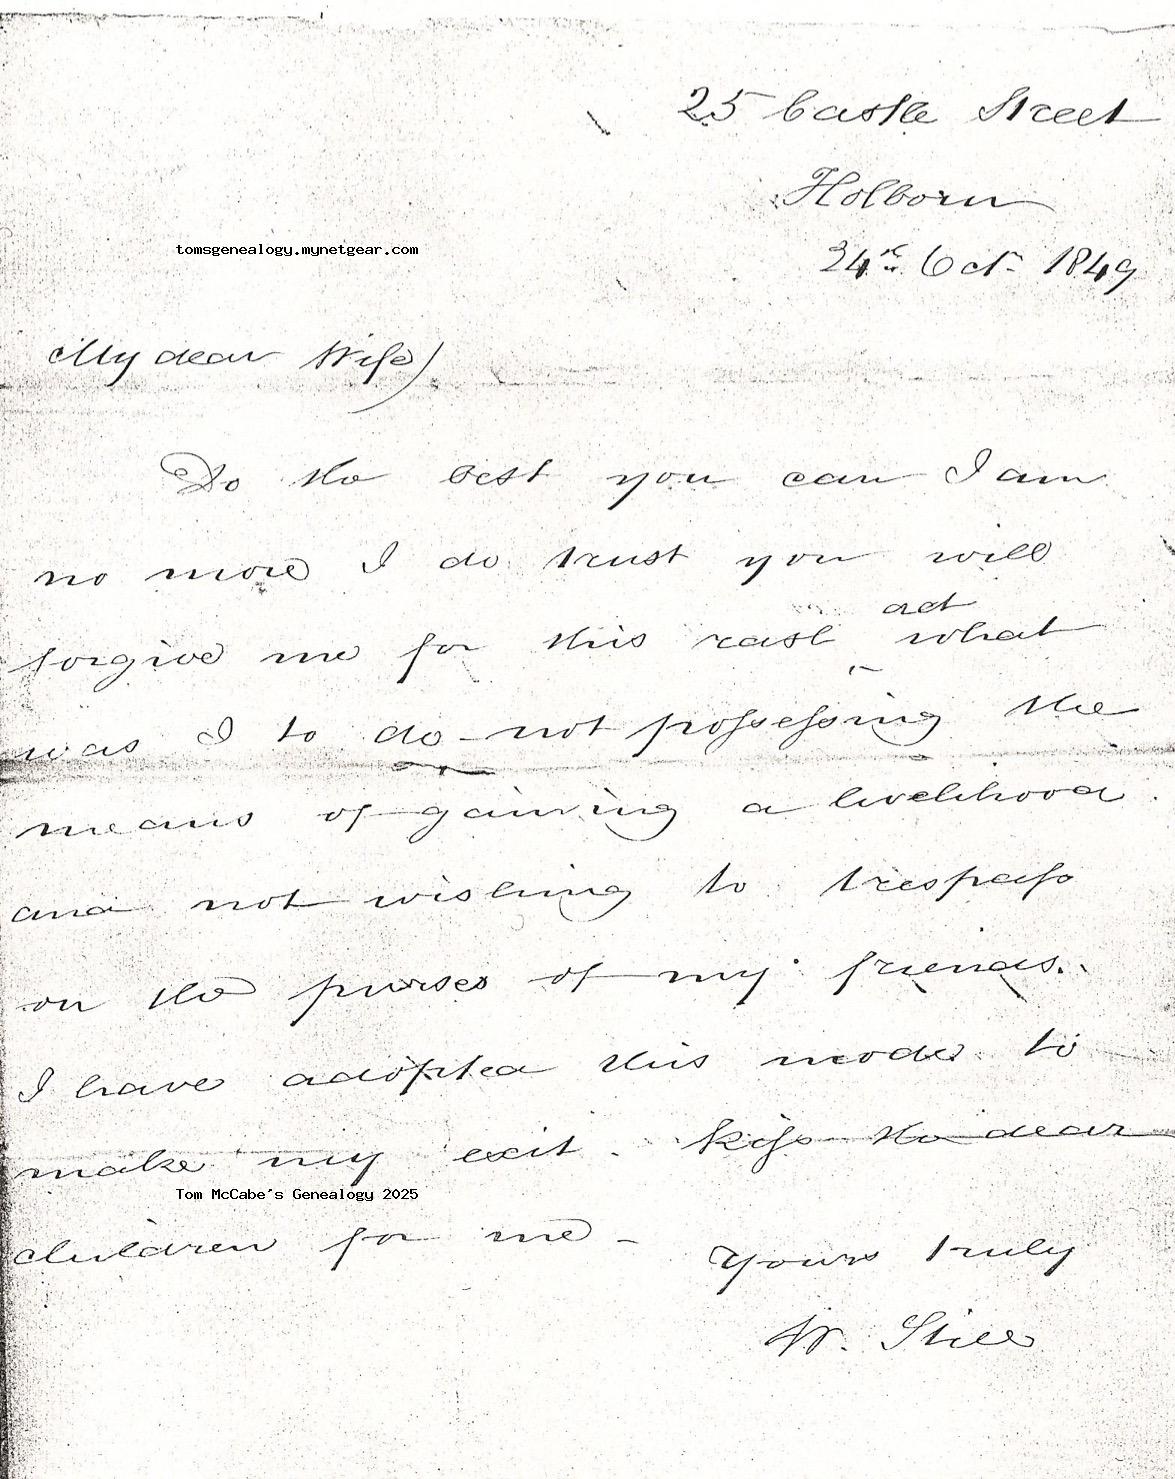 25 Castle Street
Holborn
tomsgenealogy.mynetgear.com
24th Oct 1849
My dear Wife)
Do the best you can I am
no more I do trust you will
act
forgive me for this rash ^ what
was I to do not possessing the
means of gaining a livelihood.
and not wishing to trespass
on the purses of my friends.
I have adopted this mode to
make my exit. kiss the dear
Tom McCabe's Genealogy 2025
children for me -
Yours truly
W. Still